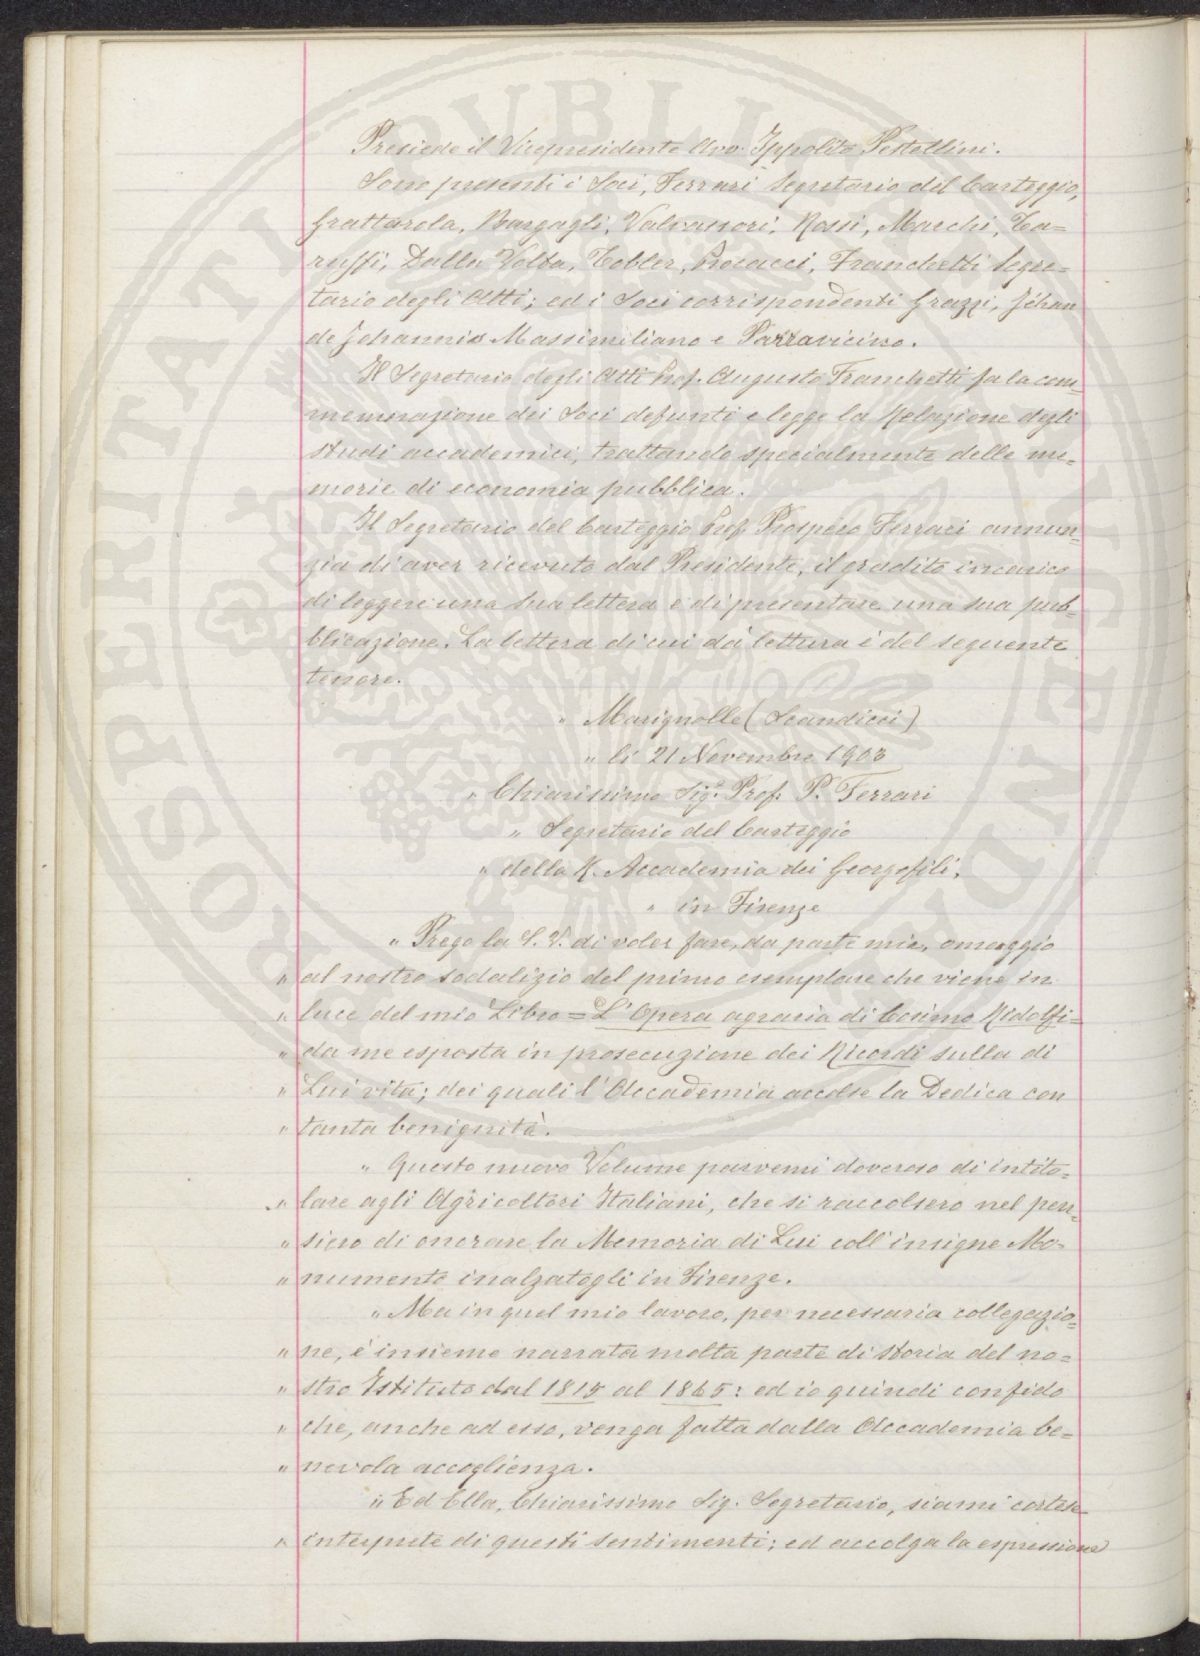 Presiede il Vicepresidente Avv. Ippolito Pestellini.
Sono presenti i Soci, Ferrari Segretario del Carteggio,
Grattarola, Bargagli, Valvassori, Rossi, Marchi, Ca=
ruffi, Dalla Volta, Tobler, Procacci, Franchetti Segre=
tario degli Atti; ed i Soci corrispondenti Grazzi, Jéhan
de Johannis Massimiliano e Parravicino.
Il Segretario degli Atti Prof. Augusto Franchetti fa la com=
memorazione dei Soci defunti e legge la Relazione degli
studi accademici, trattando specialmente delle me=
morie di economia pubblica.
Il Segretario del Carteggio Prof. Prospero Ferrari annun=
zia di aver ricevuto dal Presidente, il gradito incarico
di leggere una sua lettera e di presentare una sua pub=
blicazione. La lettera di cui dà lettura è del seguente
tenore.
" Marignolle (Scandicci)
" li 21 Novembre 1903
" Chiarissimo Sigr. Prof. P. Ferrari
" Segretario del Carteggio
" della R. Accademia dei Georgofili,
" in Firenze
" Prego la S. V. di voler fare, da parte mia, omaggio
" al nostro sodalizio del primo esemplare che viene in
" luce del mio Libro = L'Opera agraria di Cosimo Ridolfi=
" da me esposta in prosecuzione dei Ricordi sulla di
" Lui vita; dei quali l'Accademia accolse la Dedica con
" tanta benignità.
" Questo nuovo Volume parvemi doveroso di intito=
" lare agli Agricoltori Italiani, che si raccolsero nel pen=
" siero di onorare la Memoria di Lui coll'insigne Mo=
" numento inalzatogli in Firenze.
" Ma in quel mio lavoro, per necessaria collegazio=
" ne, è insieme narrata molta parte di storia del no=
" stro Istituto dal 1815 al 1865: ed io quindi confido
" che, anche ad esso, venga fatta dalla Accademia be=
" nevola accoglienza.
" Ed Ella, Chiarissimo Sig. Segretario, siami cortese
" interprete di questi sentimenti; ed accolga la espressione
PROSPERITATI PVBLICAE AVGENDAE